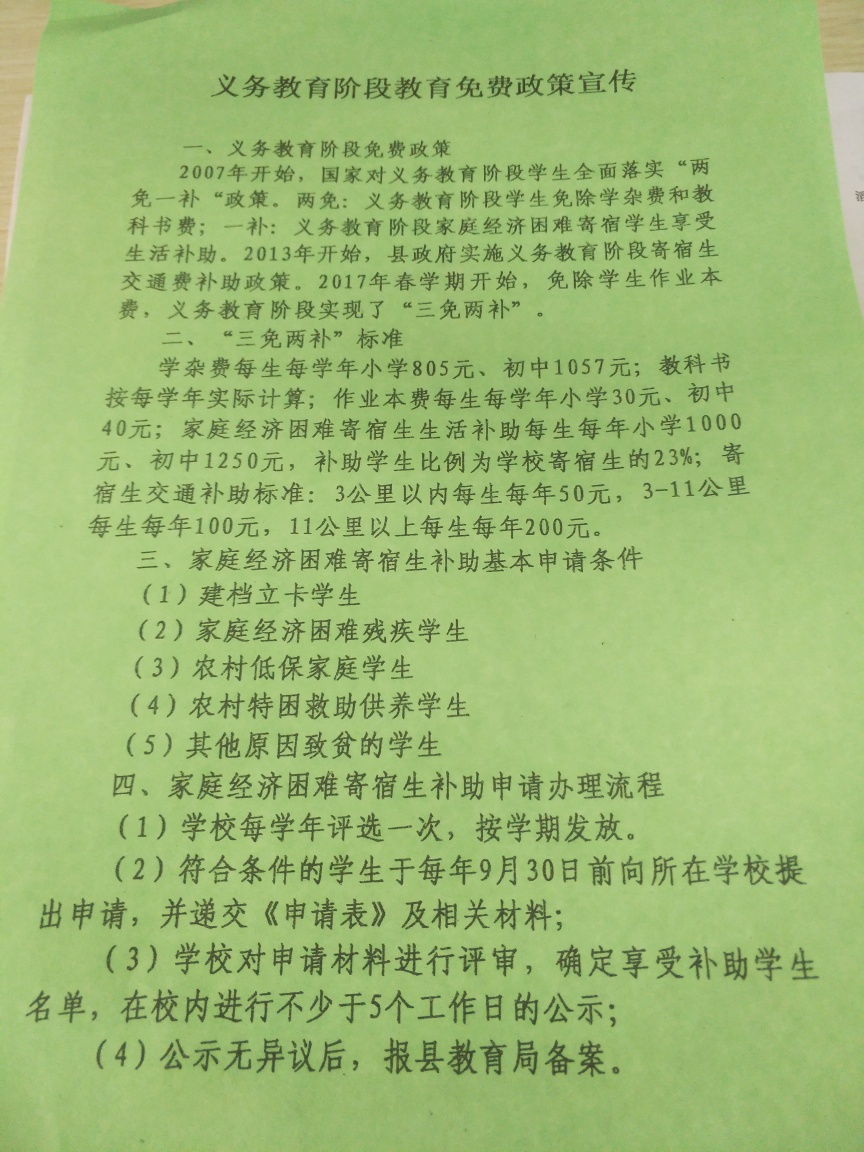 义务教育阶段教育免费政策宣传
一、义务教育阶段免费政策
2007年开始，国家对义务教育阶段学生全面落实“两
免一补“政策。两免：义务教育阶段学生免除学杂费和教
科书费；一补：义务教育阶段家庭经济困难寄宿学生享受
生活补助。2013年开始，县政府实施义务教育阶段寄宿生
交通费补助政策。2017年春学期开始，免除学生作业本
费，义务教育阶段实现了“三免两补”。
二、“三免两补”标准
学杂费每生每学年小学805元、初中1057元；教科书
按每学年实际计算；作业本费每生每学年小学30元、初中
40元；家庭经济困难寄宿生生活补助每生每年小学1000
元、初中1250元，补助学生比例为学校寄宿生的23%；寄
宿生交通补助标准：3公里以内每生每年50元，3-11公里
每生每年100元，11公里以上每生每年200元。
三、家庭经济困难寄宿生补助基本申请条件
（1）建档立卡学生
（2）家庭经济困难残疾学生
（3）农村低保家庭学生
（4）农村特困救助供养学生
（5）其他原因致贫的学生
四、家庭经济困难寄宿生补助申请办理流程
（1）学校每学年评选一次，按学期发放。
（2）符合条件的学生于每年9月30日前向所在学校提
出申请，并递交《申请表》及相关材料；
（3）学校对申请材料进行评审，确定享受补助学生
名单，在校内进行不少于5个工作日的公示；
（4）公示无异议后，报县教育局备案。